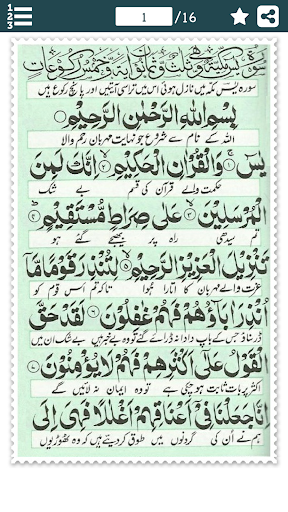 1 2 3
1 /16
سورة يس مكية وهي ثلث وثمانون اية وخمس ركوعات
سورہ یٰس مکہ میں نازل ہوئی اس میں تراسی آیتیں اور پانچ رکوع ہیں
بِسْمِ اللهِ الرَّحْمٰنِ الرَّحِيْمِ
اللہ کے نام سے شروع جو نہایت مہربان رحم والا
يٰسٓ ۚ وَالْقُرْاٰنِ الْحَكِيْمِ ۙ اِنَّكَ لَمِنَ
حکمت والے قرآن کی قسم بے شک
الْمُرْسَلِيْنَ ۙ عَلٰى صِرَاطٍ مُّسْتَقِيْمٍ ؕ
تم سیدھی راہ پر بھیجے گئے ہو
تَنْزِيْلَ الْعَزِيْزِ الرَّحِيْمِ ۙ لِتُنْذِرَ قَوْمًا مَّآ
عزت والے مہربان کا اتارا ہوا تاکہ تم اس قوم کو
اُنْذِرَ اٰبَآؤُهُمْ فَهُمْ غٰفِلُوْنَ لَقَدْ حَقَّ
ڈر سناؤ جس کے باپ دادا نہ ڈرائے گئے تو وہ بے خبر ہیں بے شک ان میں
الْقَوْلُ عَلٰٓى اَكْثَرِهِمْ فَهُمْ لَا يُؤْمِنُوْنَ
اکثر پر بات ثابت ہو چکی ہے تو وہ ایمان نہ لائیں گے
اِنَّا جَعَلْنَا فِيْٓ اَعْنَاقِهِمْ اَغْلٰلًا فَهِيَ اِلَى
ہم نے ان کی گردنوں میں طوق کر دیئے ہیں کہ وہ ٹھوڑیوں